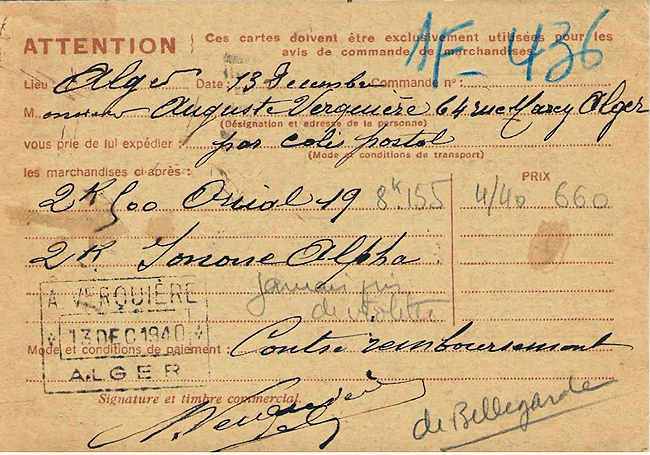 ATTENTION
Ces cartes doivent être exclusivement utilisées pour les
avis de commande de marchandises.
1F- 436
Lieu Alger Date: 13 Decembre Commande n°:
M onsieur Auguste Verquière 64 rue Alger
(Désignation et adresse de la personne)
vous prie de lui expédier : par colis postal
(Mode et conditions de transport)
les marchandises ci-après :
PRIX
2K 500 19 8k155 4/40 660
2K Ionone Alpha
jamais pris
de violette
A VERQUIÈRE
* 13 DEC 1940 *
ALGER
Mode et conditions de paiement : Contre remboursement
Signature et timbre commercial.
de Bellegarde